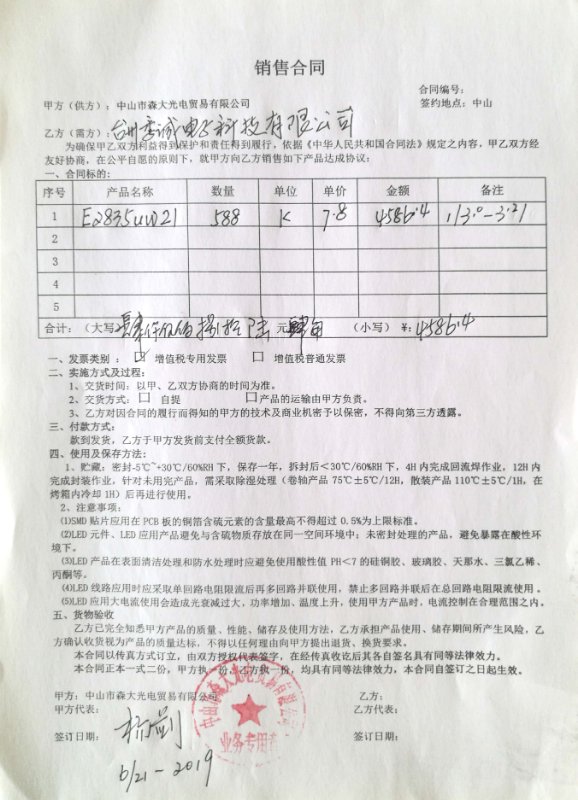 销售合同
合同编号：
甲方（供方）：中山市森大光电贸易有限公司 签约地点：中山
乙方（需方）：台州 诚电子科技有限公司
为确保甲乙双方利益得到保护和责任得到履行，依据《中华人民共和国合同法》规定之内容，甲乙双方经
友好协商，在公平自愿的原则下，就甲方向乙方销售如下产品达成协议：
一、合同标的：
序号 产品名称 数量 单位 单价 金额 备注
1 E2835UW21 588 K 7.8 4586.4 3.0-3.21
2
3
4
5
合计：（大写） 肆仟伍佰捌拾陆 元 肆角 （小写）¥：4586.4
一、发票类别：☑ 增值税专用发票 □ 增值税普通发票
二、实施方式及过程：
1、交货时间：以甲、乙双方协商的时间为准。
2、交货方式：□ 自提 □产品的运输由甲方负责。
3、乙方对因合同的履行而得知的甲方的技术及商业机密予以保密，不得向第三方透露。
三、付款方式：
款到发货，乙方于甲方发货前支付全额货款。
四、使用及保存方法：
1、贮藏：密封-5℃~+30℃/60%RH下，保存一年，拆封后＜30℃/60%RH下，4H内完成回流焊作业，12H内
完成封装作业，针对未用完产品，需采取除湿处理（卷轴产品 75℃±5℃/12H，散装产品 110℃±5℃/1H，在
烤箱内冷却 1H）后再进行使用。
2、注意事项：
⑴SMD 贴片应用在 PCB 板的铜箔含硫元素的含量最高不得超过 0.5%为上限标准。
⑵LED 元件、LED 应用产品避免与含硫物质存放在同一空间环境中；未密封处理的产品，避免暴露在酸性环
境下。
⑶LED 产品在表面清洁处理和防水处理时应避免使用酸性值 PH＜7 的硅铜胶、玻璃胶、天那水、三氯乙稀、
丙酮等。
⑷LED 线路应用时应采取单回路电阻限流后再多回路并联使用，禁止多回路并联后在总回路电阻限流使用。
⑸LED 应用大电流使用会造成光衰减过大，功率增加、温度上升，使用甲方产品时，电流控制在合理范围之内。
五、货物验收
乙方已完全知悉甲方产品的质量、性能、储存及使用方法，乙方承担产品使用、储存期间所产生风险，乙
方确认收货视为产品的质量达标，不得以任何理由向甲方提出退货、换货要求。
本合同以传真方式订立，由双方授权代表签字，在经传真收讫后其各自签名具有同等法律效力。
本合同正本一式二份，甲方执一份，乙方执一份，均具有同等法律效力，本合同自签订之日起生效。
甲方：中山市森大光电贸易有限公司 乙方：
甲方代表： 乙方代表：
签订日期： 签订日期：
6/21-2019
中山市森大光电贸易有限公司
业务专用章